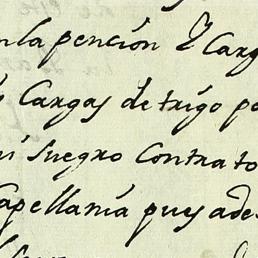 n la pención Y Carg
Cargas de trigo pe
i suegro Contra to
apellanía pues ade